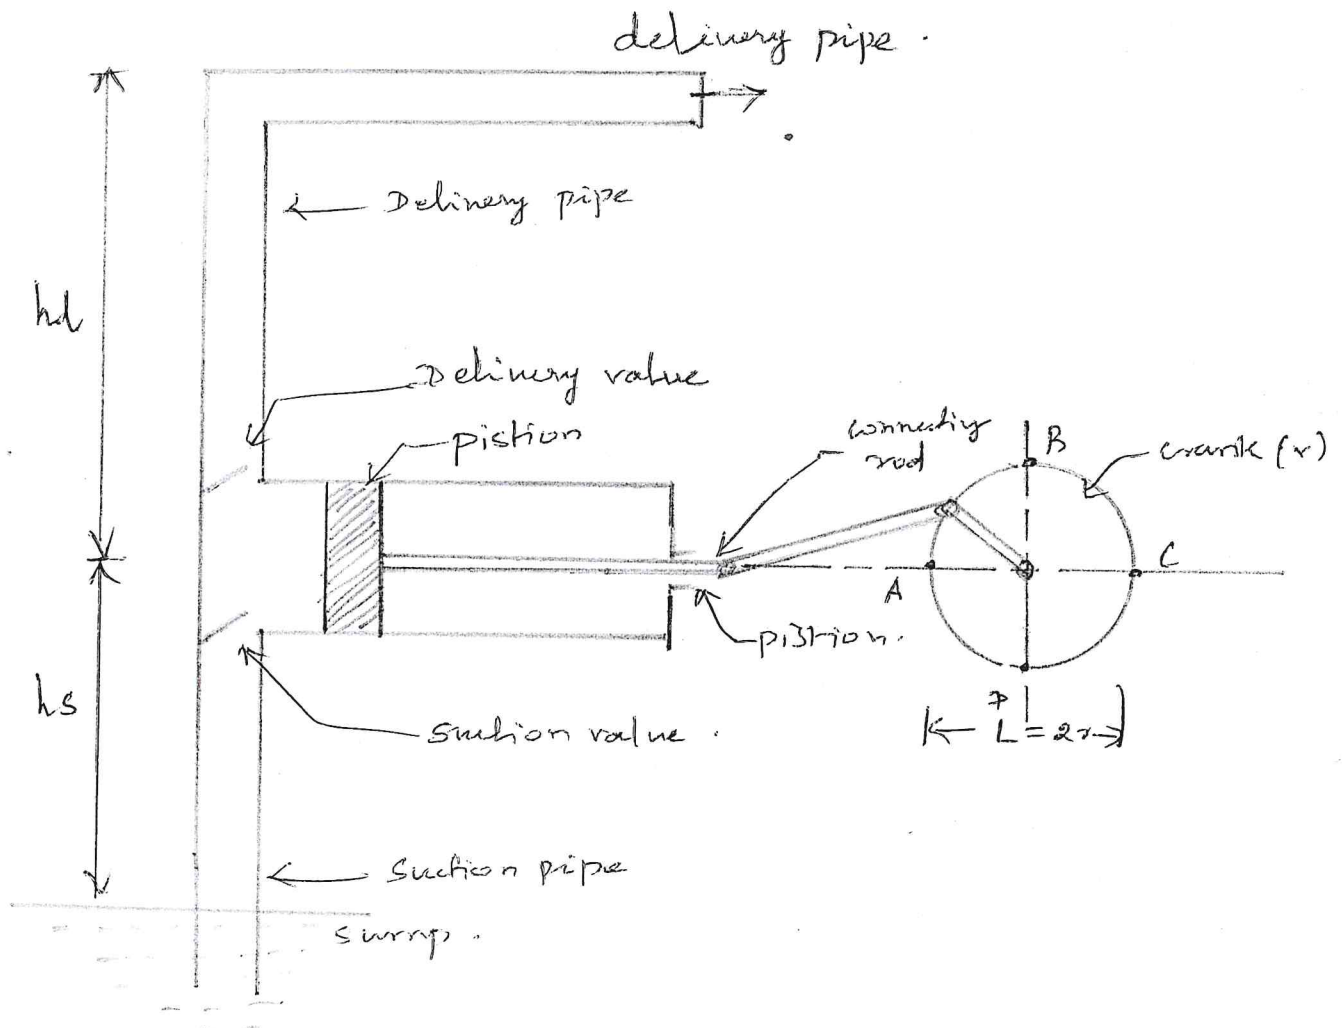 delivery pipe.
Delivery pipe
hd
Delivery value
pistion
connecting
rod
B
crank (r)
A
C
pistion.
hs
D
L = 2r
Suction value.
Suction pipe
Sump.